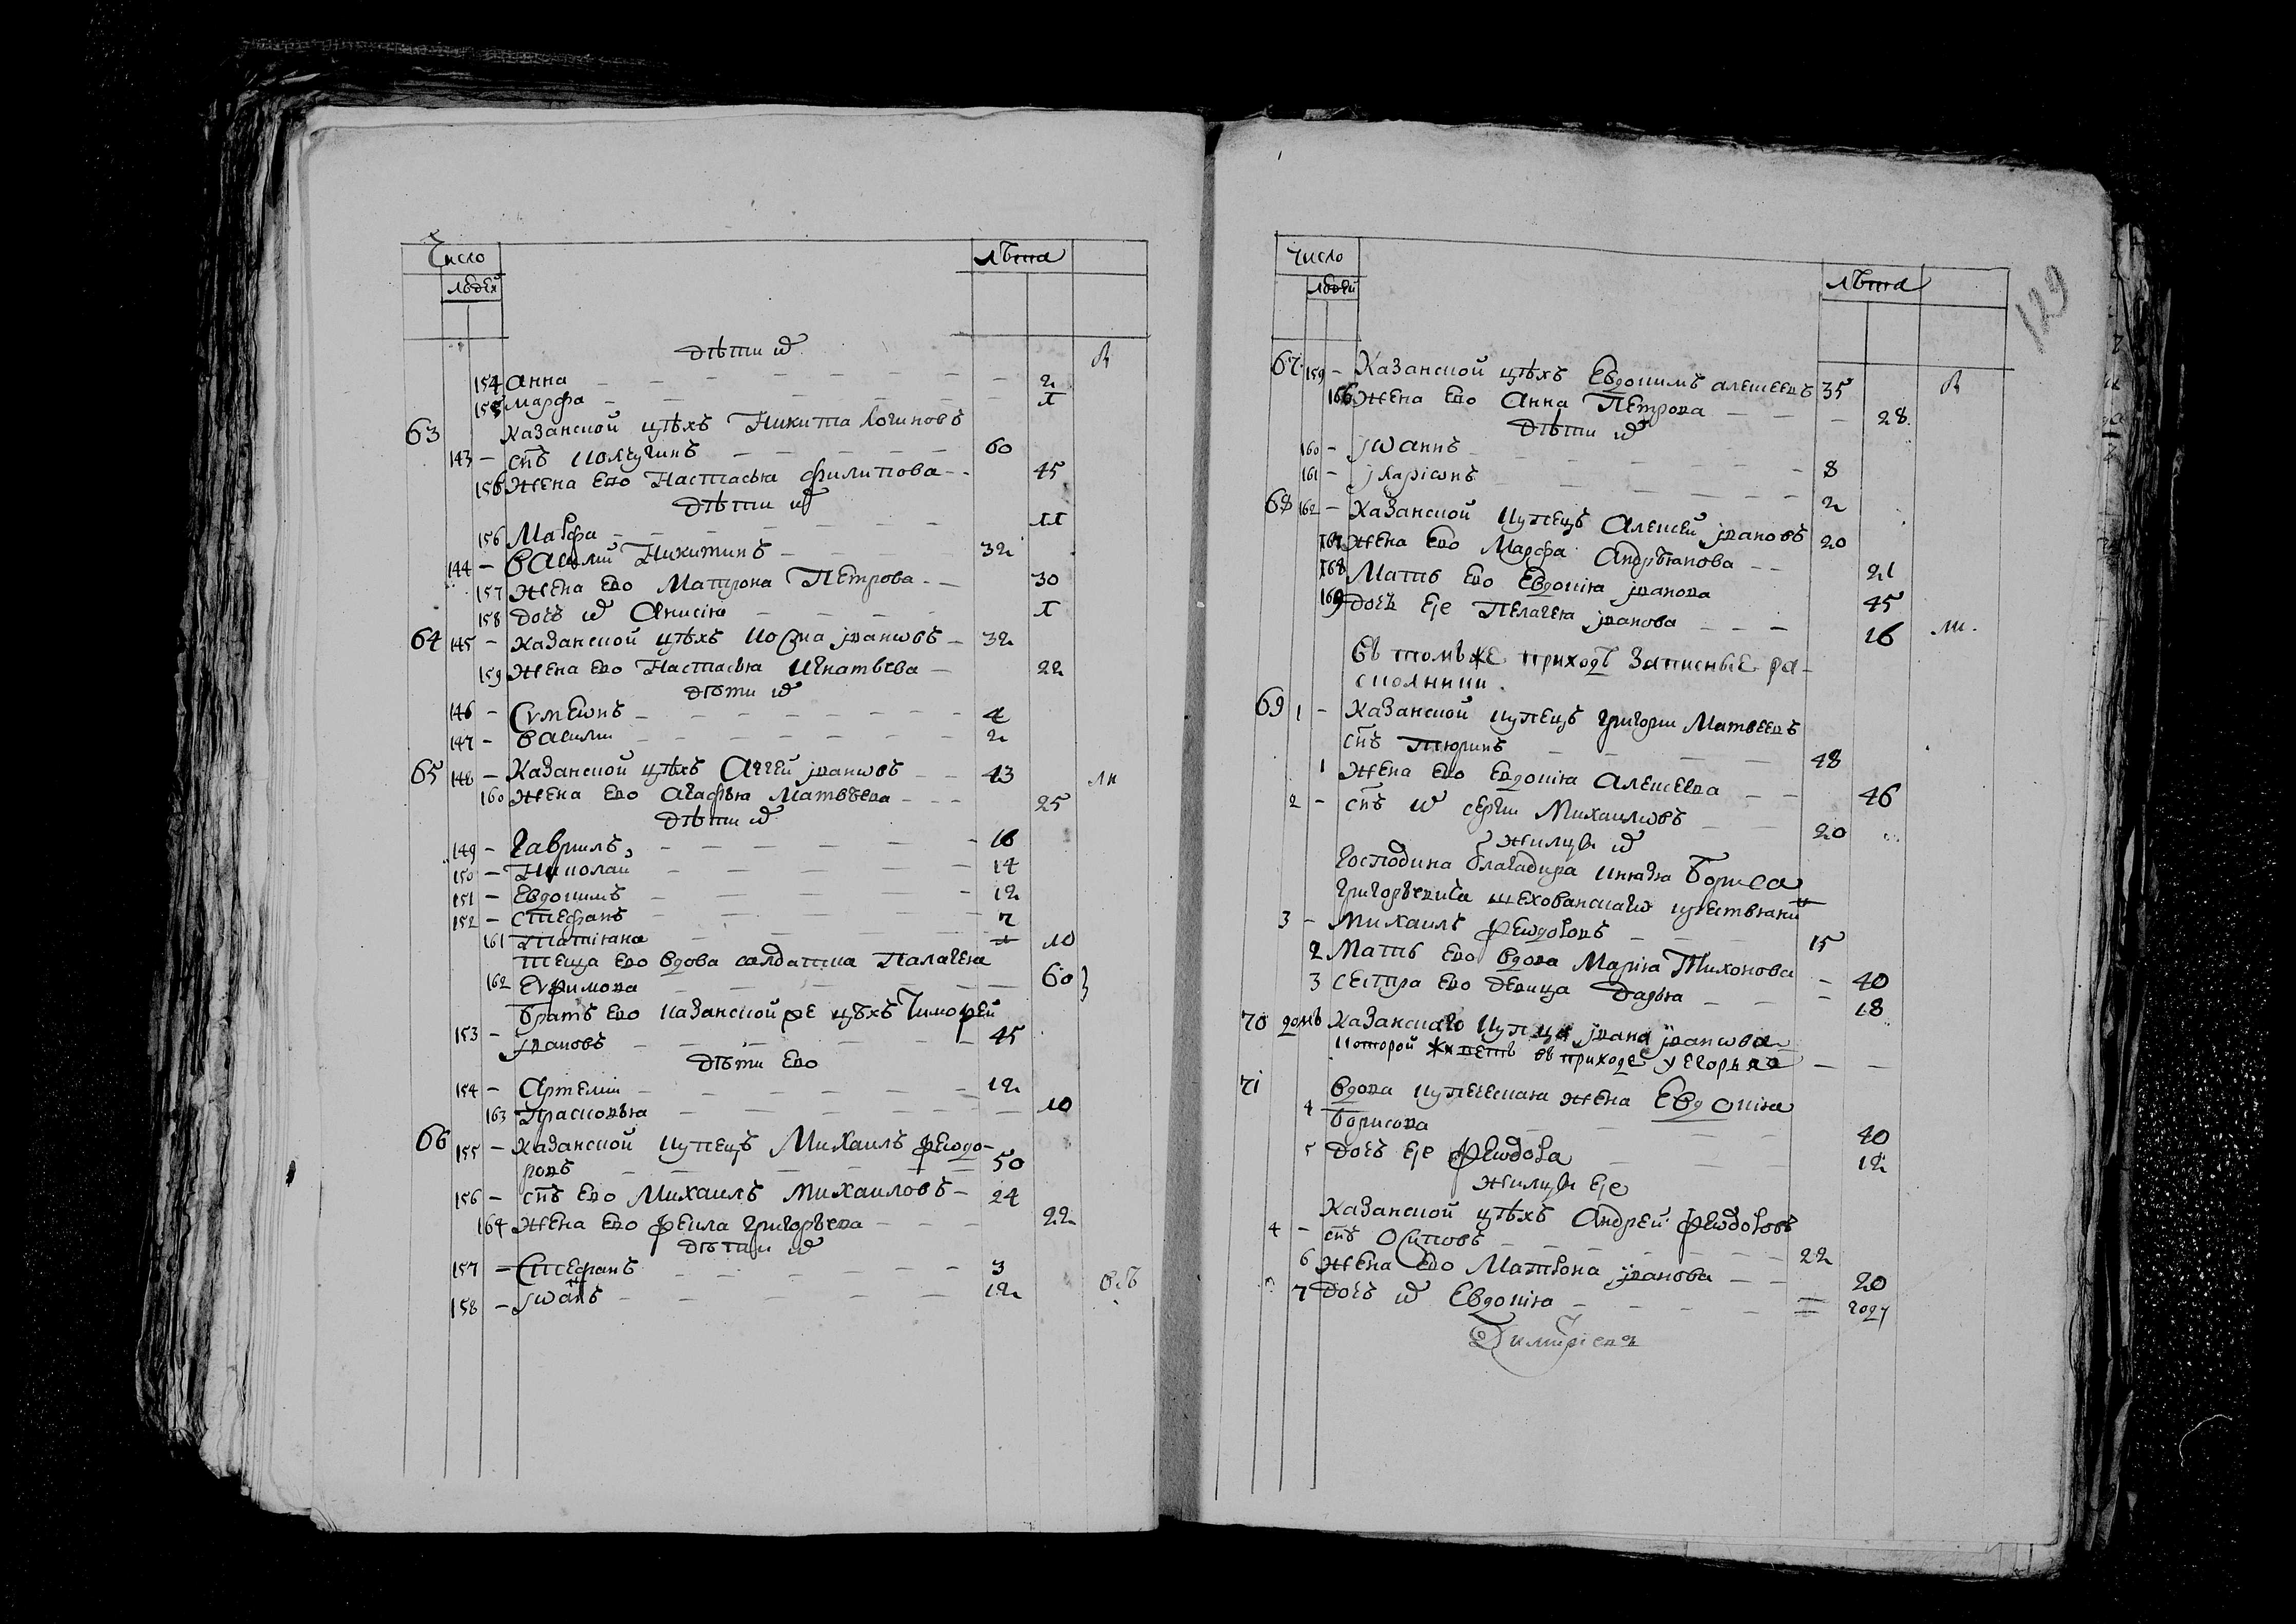 Число
людей
лѣта
дѣти и҃
154 Анна 2
155 марфа
63 Казанской цѣхъ Никита Логиновъ
143 - сн҃ъ 60
155 жена ево Настасья филипова 45
дѣти и҃
156 Марфа
144 - Василий Никитинъ 32
157 жена ево Матрона Петрова 30
158 дочь и҃ Анисія
64 145 - казанской цѣхъ Козма ивановъ 32
159 жена ево Настасья Игнатьева 22
дѣти и҃
146 - Сѵмеѡнъ 4
147 - Василий 2
65 148 - Казанской цѣхъ Аггей ивановъ 43
160 жена ево Агафья Матвѣева 25
дѣти и҃
149 - Гаврилъ 16
150 - Николай 14
151 - Евдокимъ 12
152 - Стефанъ 7
161 татіяна 10
теща ево вдова салдатка Палагея
162 Еѵфимова 60
братъ ево казанской же цѣхъ Тимоѳей
153 - ивановъ 45
дѣти ево
154 - Артемій 12
163 Прасковья 10
66 155 - казанской купецъ Михаилъ ѳеодо-
ровъ 50
156 - сн҃ъ ево Михаилъ Михаиловъ 24
164 жена ево ѳекла григорьева 22
дѣти и҃
157 - Стефанъ 3
158 - Іѡаннъ 12
Число
людей
лѣта
129
67 159 - Казанской цѣхъ Евдокимъ алексеевъ 35
166 жена ево Анна Петрова 28
дѣти и҃
160 - Іѡаннъ 8
161 - Іларіѡнъ 2
68 162 - Казанской купецъ Алексей ивановъ 20
167 жена ево Марфа Андрѣянова 21
168 Мать ево Евдокія иванова 45
169 дочь ея Пелагея иванова 16
въ томъ же приходѣ записные ра-
скольники
69 1 - Казанской купецъ григории Матвеевъ
сн҃ъ Тюринъ 48
1 жена ево евдокія алексеева 46
2 - сн҃ъ и҃ сергии Михаиловъ 20
жильцы и҃
Господина князя Бориса
григорьевича крестьянинъ
3 - михаилъ ѳеѡдоровъ 15
2 мать ево вдова Марія Тихонова 40
3 сестра ево девица дарья 18
70 домъ Казанскаго купца ивана иванова
которой живетъ въ приходе у егорья
71 вдова купеческая жена Евдокія
4 борисова 40
5 дочь ея ѳеѡдора 12
жильцы ея
Казанской цѣхъ Андрей ѳеѡдоровъ
4 - сн҃ъ Осиповъ 22
6 жена ево Матрона иванова 20
7 дочь и҃ Евдокія году
Димитріевъ